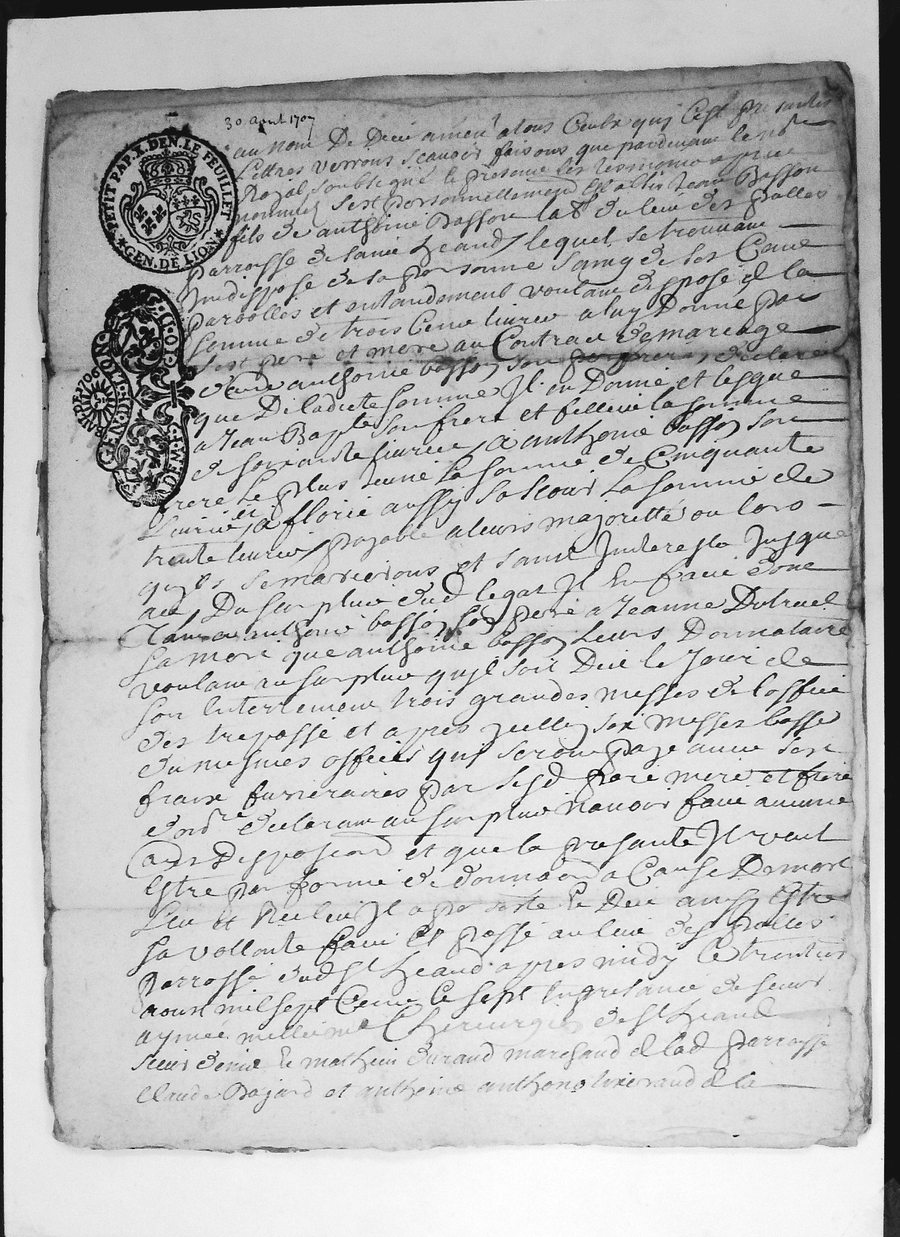 30 aoust 1707
PETIT PAP. X. DEN. LE FEUILLET
GEN. DE LION
GEN. DE LION
au nom de Dieu amen a tous ceulx quy ces presantes
Lettres verrons scauoir faisons que pardeuant le no.re
Royal soubsigné et presence les tesmoins apres
nommes sest personnellement estably Jean Basson
fils de anthoine Basson lab.r du lieu des pralles
parroisse de sainct heand, lequel se trouuant
indispose de sa personne sain de ses sens
parolles et entandement voulant dispose de la
somme de trois cent liures a luy donne par
sest pere et mere au contract de mariage
dudit anthoine basson son frere, declare
que de ladicte somme Il en donne et legue
a Jean Bap.te son frere et filleul la somme
de soixante liures, a anthoine basson son
frere le plus jeune la somme de cinquante
Liures, et a florie aussy sa soeur la somme de
trente liures payable a leurs majorette ou lors
quils se marieront et sans Interests Jusques
alors, Du surplus dud legat Il en faict done
tant a anthoine basson son pere a Jeanne
sa mere que anthoine basson leurs donnataire
voulant au surplus quil soit Dict le Jour de
son enterrement trois grandes messes de loffice
des trepasse et apres Jcelles six messes basse
du mesmes offices quy seront paye auec ses
fraix funeraires par sesd pere mere et frere
declarant au surplus nauoir faict aucune
autre disposition et que la presante Il veult
estre par forme de donnaon a cause de mort
Leu et Releu Il a persiste et Dict ainsy estre
sa vollonte faict et passe au lieu des pralles
parroisse dud St heand apres midy le trantieme
aoust mil sept cent le sept En presance de sieur
aymée chirurgien de St heand
sieur mathieu durand marchand de lad parroisse
Claude Bajard et anthoine de la